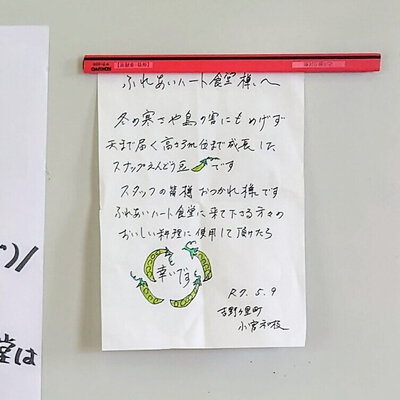 ふれあいハート食堂様へ
冬の寒さや鳥の害にもめげず
天まで届く高さ3m位まで成長した
スナップえんどう豆です
スタッフの皆様おつかれ様です
ふれあいハート食堂に来て下さる方々の
おいしい料理に使用して頂けたら
幸いです
R7.5.9
吉野ヶ里町
堂は